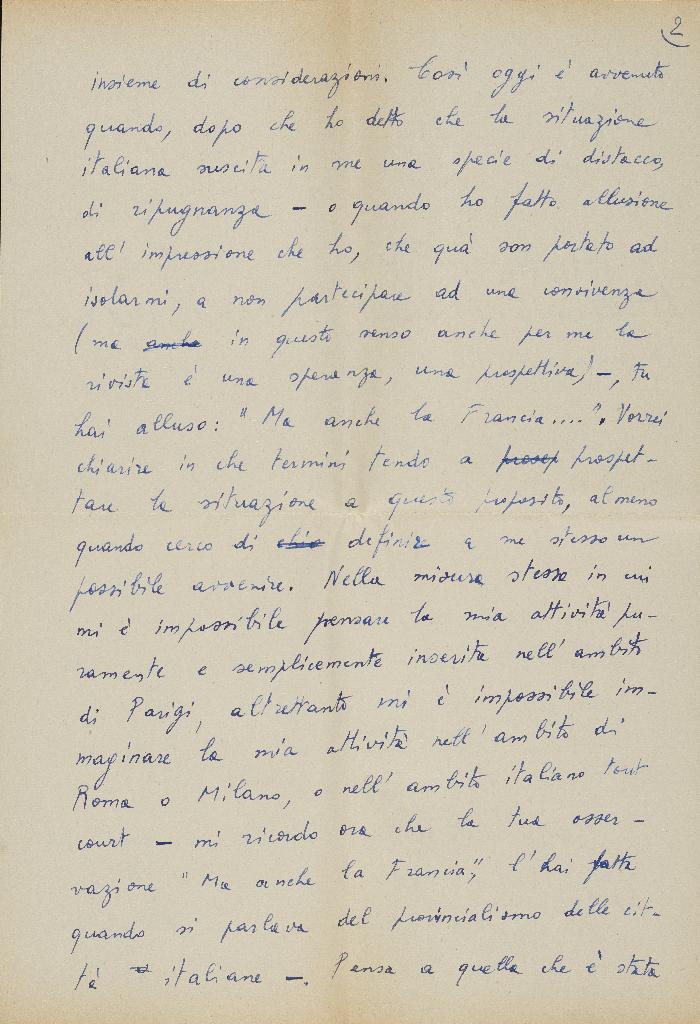 2
insieme di considerazioni. Così oggi è avvenuto
quando, dopo che ho detto che la situazione
italiana suscita in me una specie di distacco,
di ripugnanza – o quando ho fatto allusione
all' impressione che ho, che quà son portato ad
isolarmi, a non partecipare ad una convivenza
(ma anche in questo senso anche per me la
rivista è una speranza, una prospettiva) –, tu
hai alluso: "Ma anche la Francia....". Vorrei
chiarire in che termini tendo a prosep prospet-
tare la situazione a questo proposito, almeno
quando cerco di definire a me stesso un
possibile avvenire. Nella misura stessa in cui
mi è impossibile pensare la mia attività pu-
ramente e semplicemente inserita nell' ambito
di Parigi, altrettanto mi è impossibile im-
maginare la mia attività nell' ambito di
Roma o Milano, o nell' ambito italiano tout
court – mi ricordo ora che la tua osser-
vazione "Ma anche la Francia", l' hai fatta
quando si parlava del provincialismo delle cit-
tà italiane –. Pensa a quella che è stata